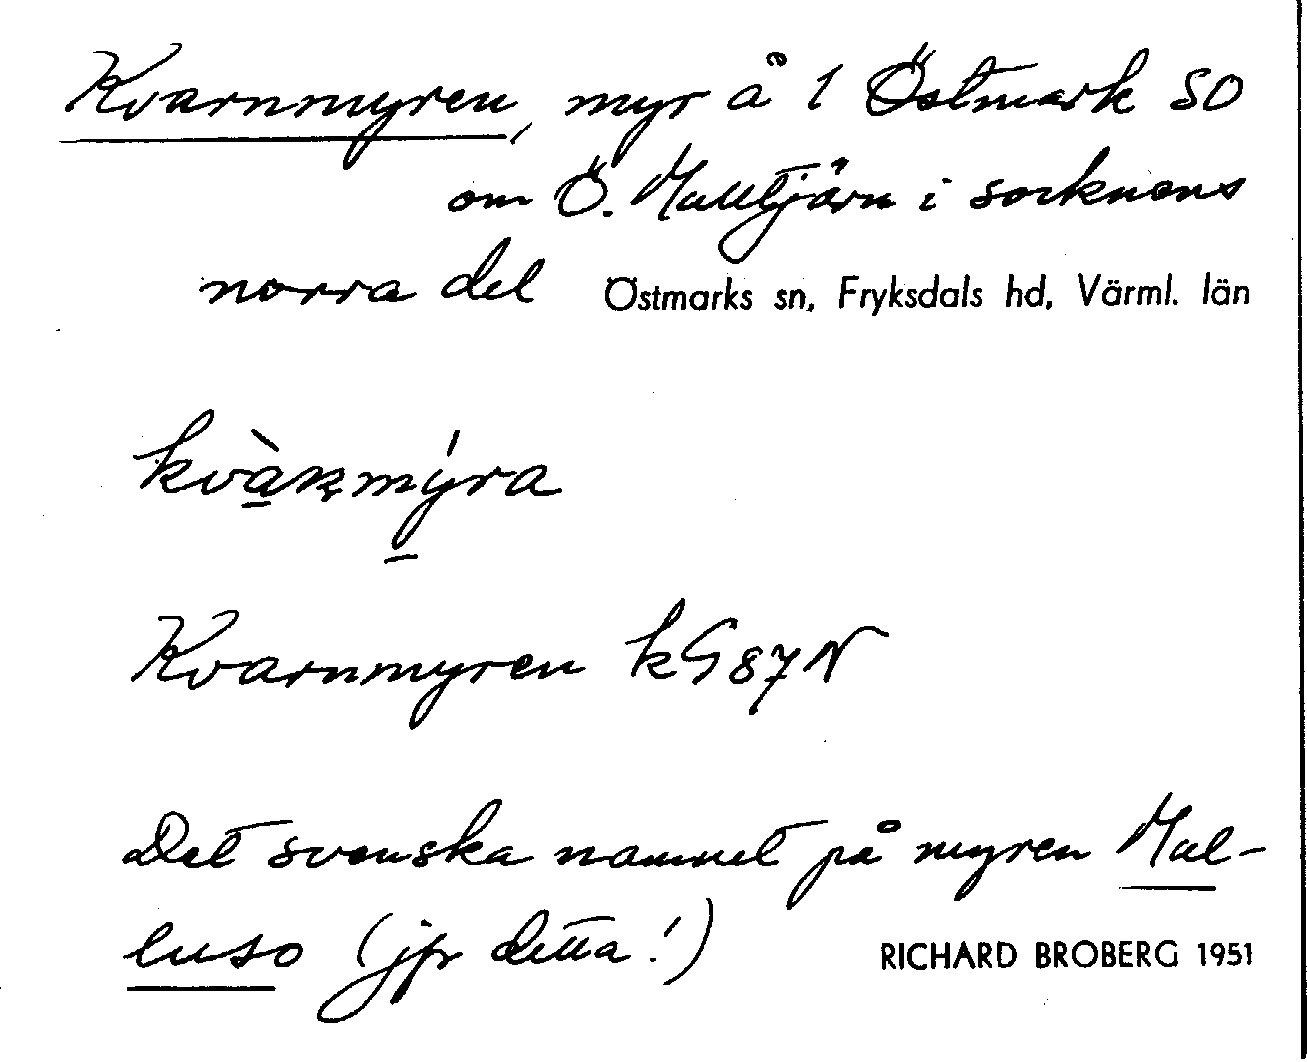 Kvarnmyren, myr å 1 Östmark SO
om Ö. Malltjärn i socknens
norra del Östmarks sn, Fryksdals hd, Värml. län
kvàṇmýra
Kvarnmyren kG87N
Det svenska namnet på myren Mal-
luso (jfr detta!)
RICHARD BROBERG 1951